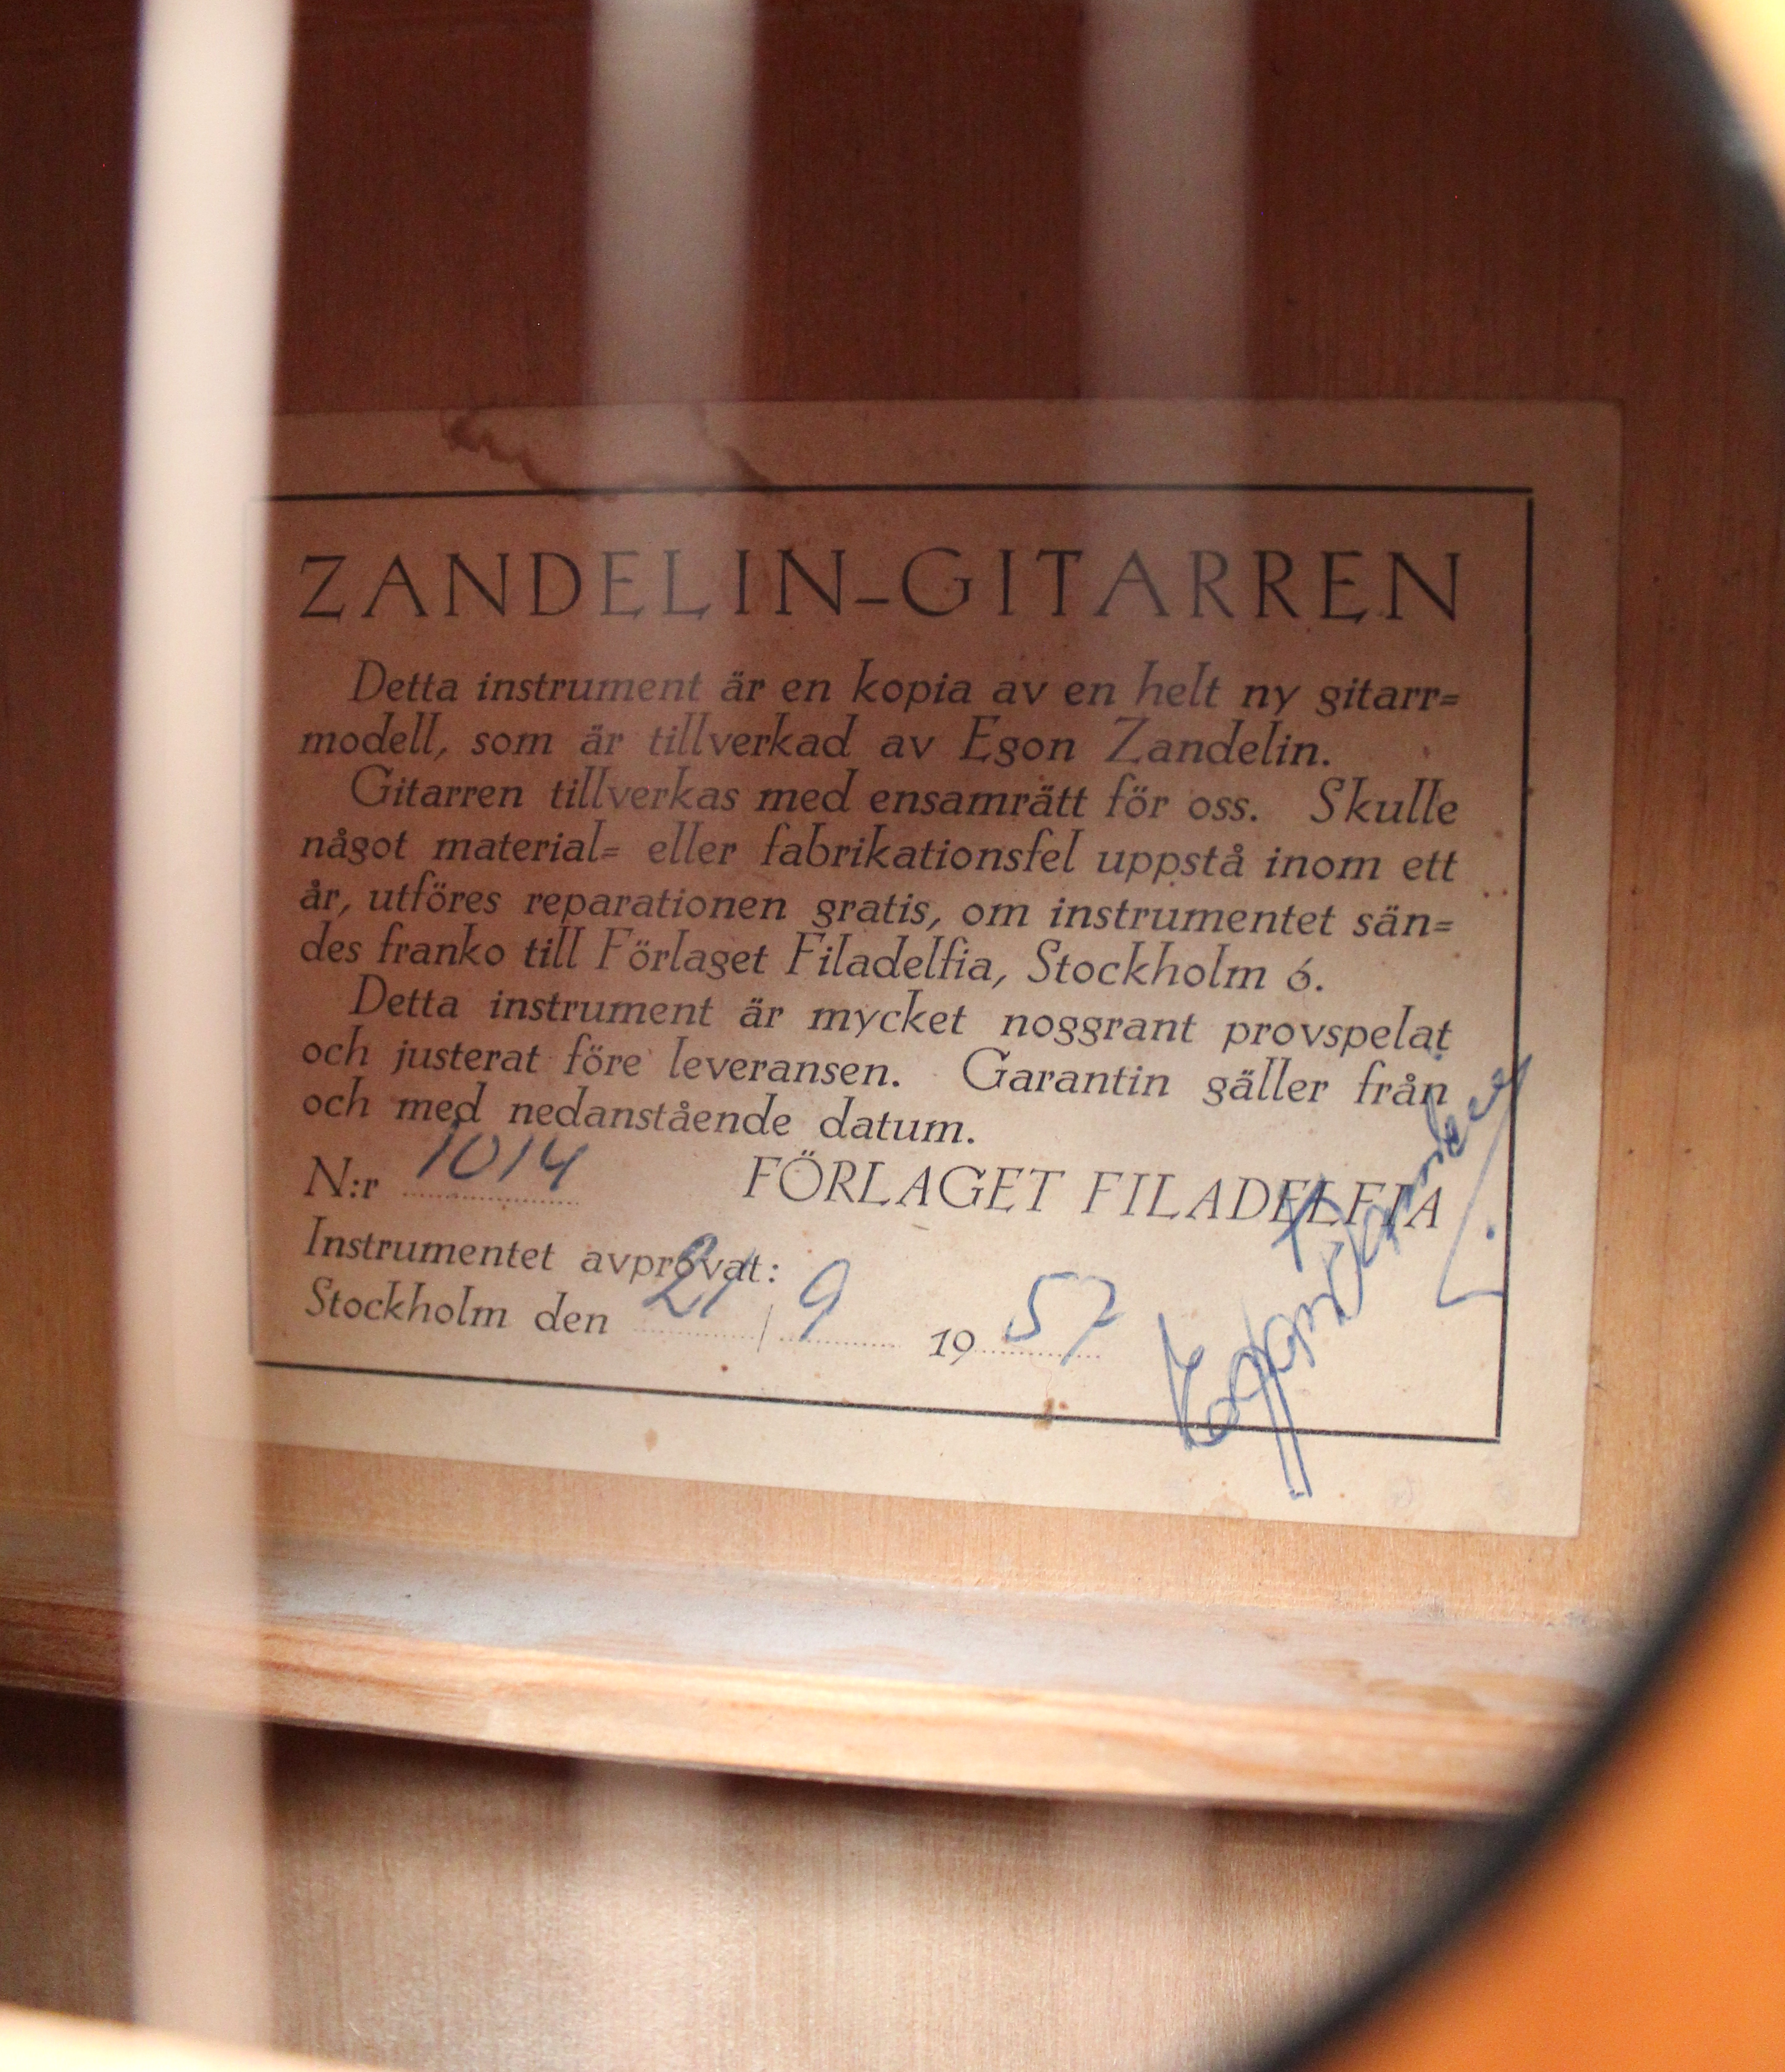 ZANDELIN-GITARREN
Detta instrument är en kopia av en helt ny gitarr=
modell, som är tillverkad av Egon Zandelin.
Gitarren tillverkas med ensamrätt för oss. Skulle
något material= eller fabrikationsfel uppstå inom ett
år, utföres reparationen gratis, om instrumentet sän=
des franko till Förlaget Filadelfia, Stockholm 6.
Detta instrument är mycket noggrant provspelat
och justerat före leveransen. Garantin gäller från
och med nedanstående datum.
N:r 1014 FÖRLAGET FILADELFIA
Instrumentet avprovat:
Stockholm den 21/9 1957